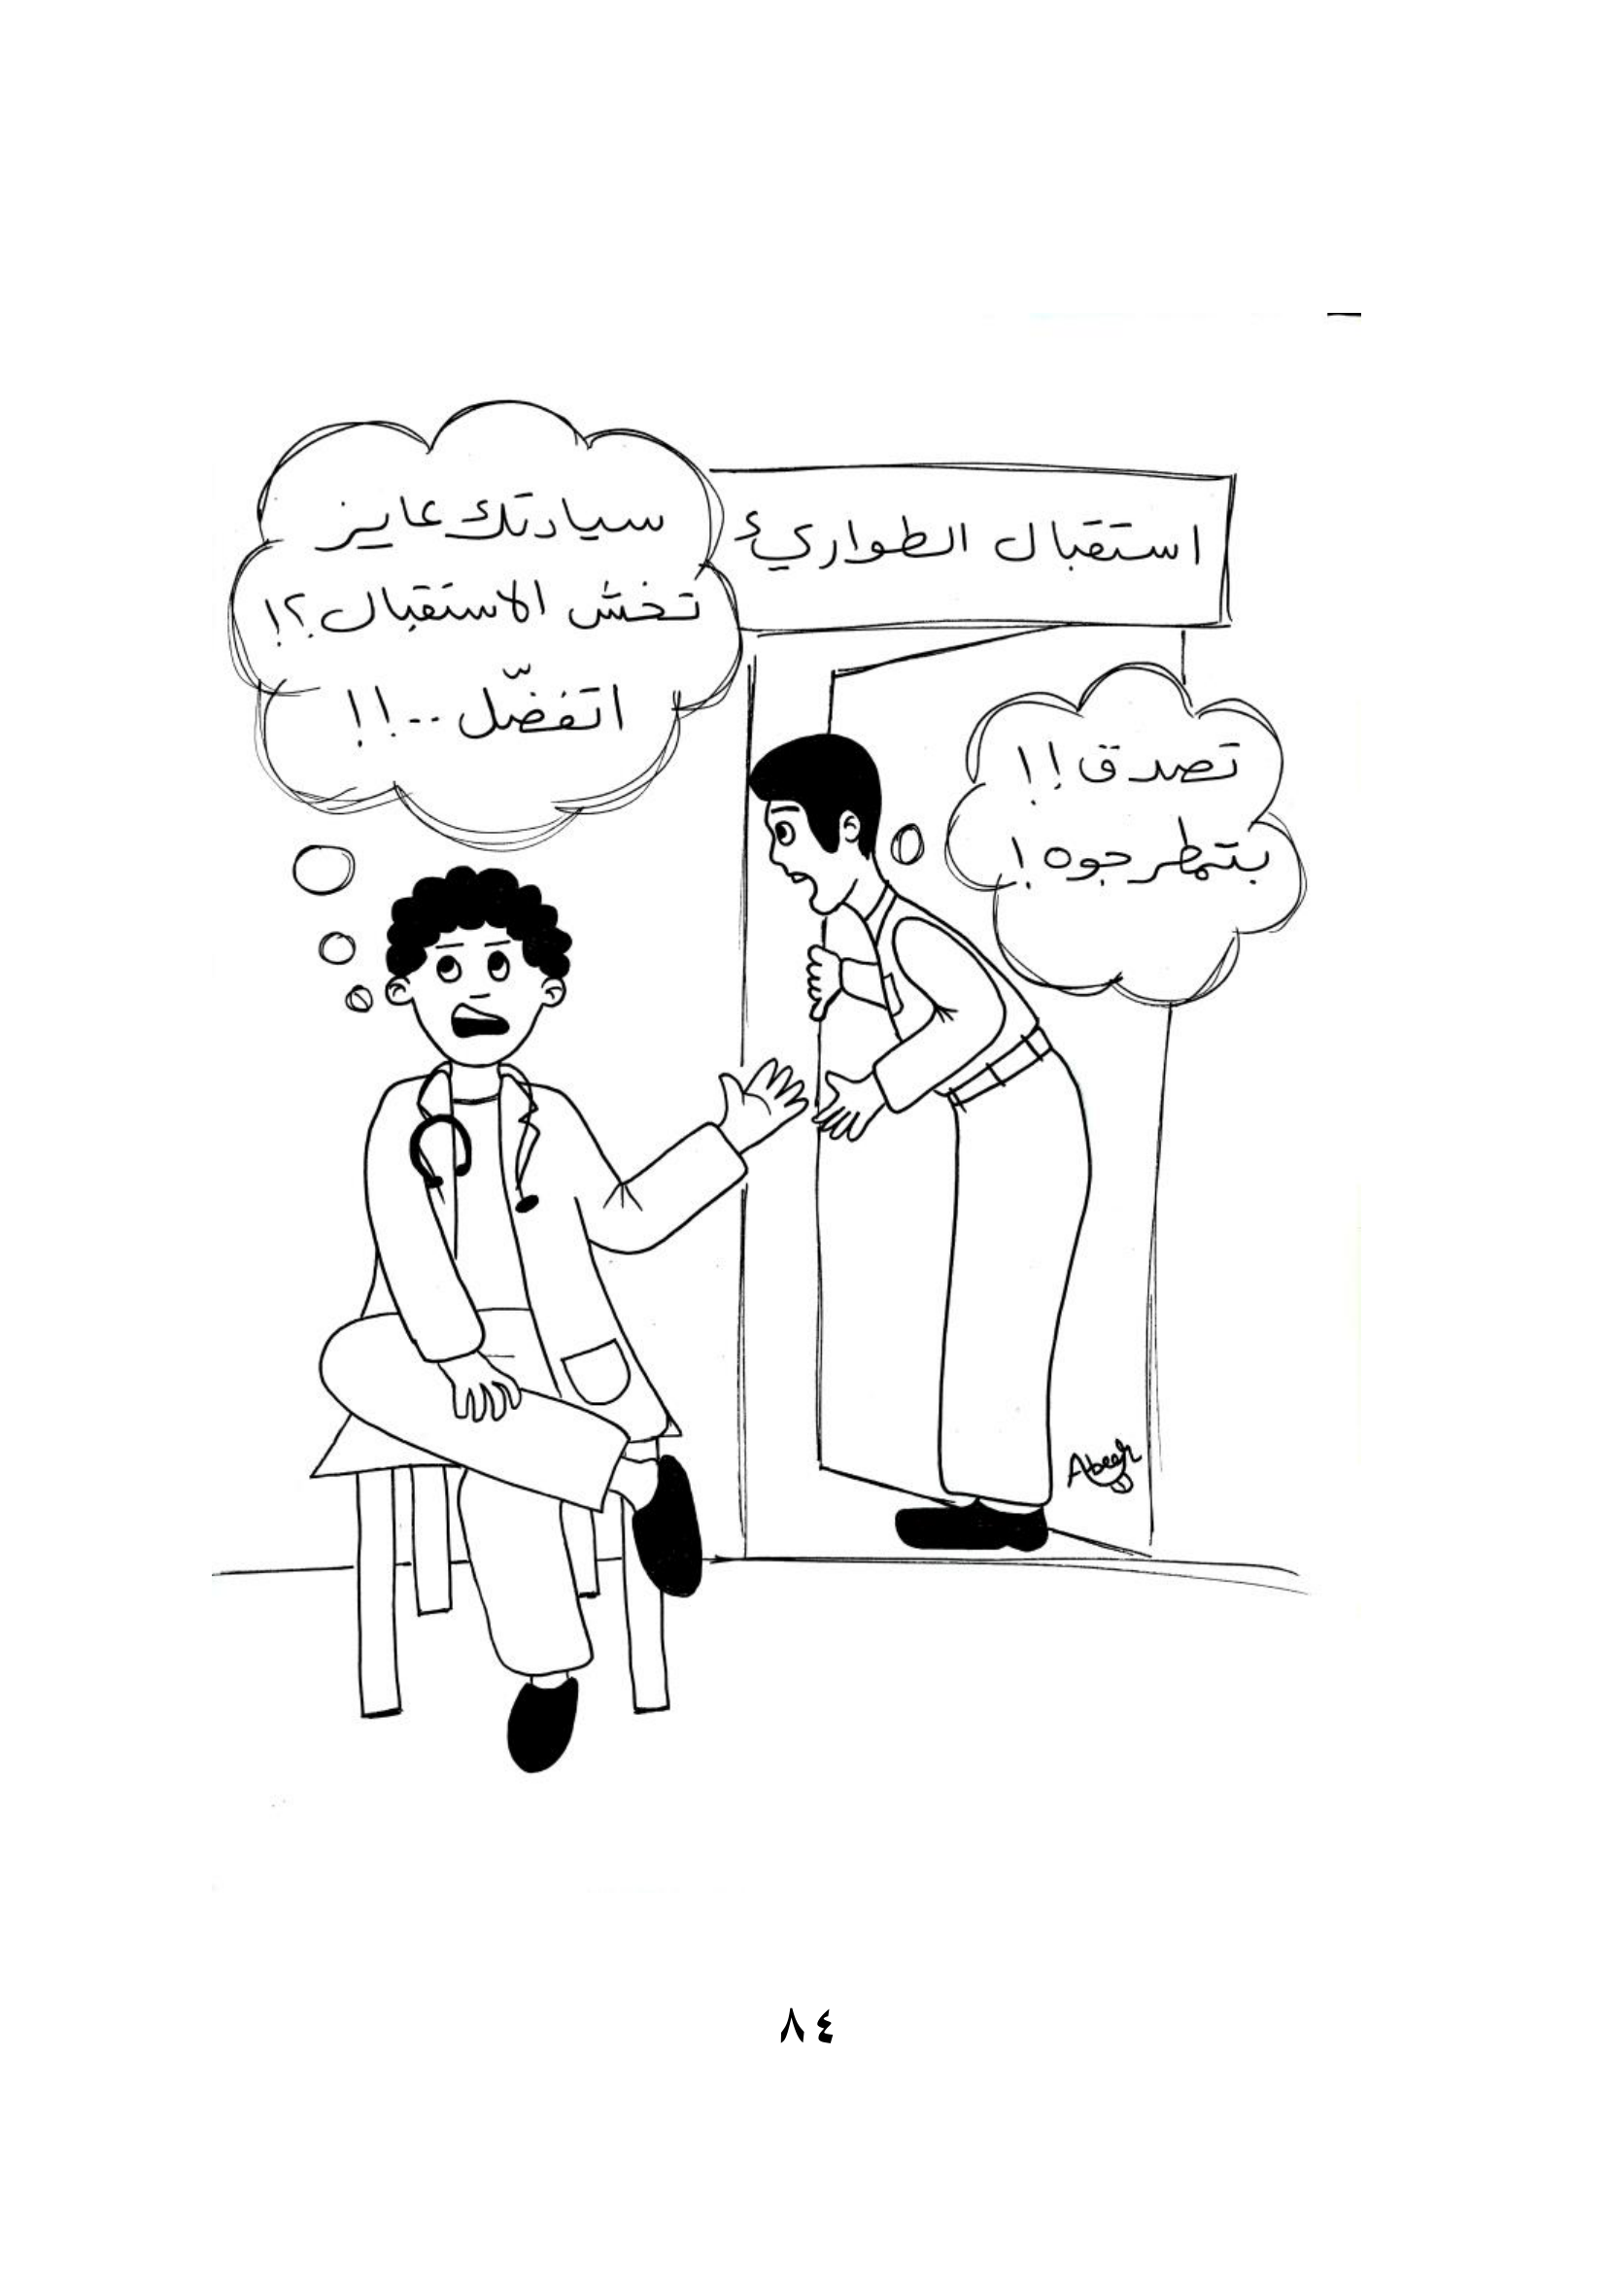 استقبال الطواريء
سيادتك عايز
تخش الاستقبال؟!
اتفضّل ..!!
تصدق!!
بتمطر جوه!
Abeer
٨٤